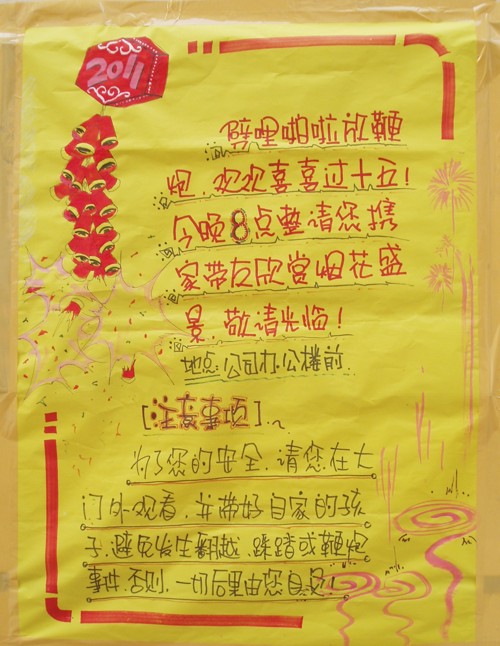 2011
劈哩啪啦放鞭
炮,欢欢喜喜过十五!
今晚8点整请您携
家带友欣赏烟花盛
景,敬请光临!
地点:公司办公楼前
[注意事项]
为了您的安全,请您在大
门外观看,并带好自家的孩
子,避免发生翻越、踩踏或鞭炮
事件,否则,一切后果由您自负!